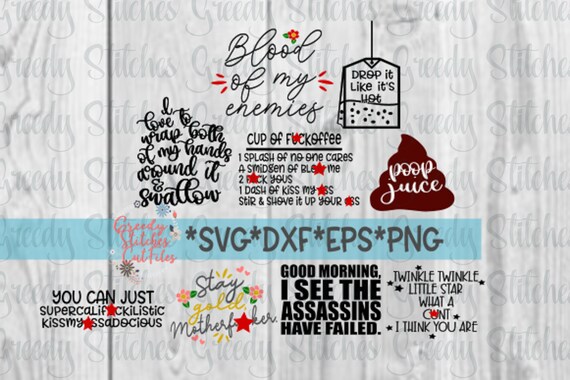 Blood
of my
enemies
DROP it
Like it's
Hot
I
love to
wrap both
of my hands
around it
&
swallow
CUP OF F★CKOFFEE
1 SPLASH OF NO ONE CARES
A SMIDGEN OF BLE★ ME
2 F★CK YOUS
1 DASH OF KISS MY ★SS
STIR & SHOVE IT UP YOUR ★SS
poop
juice
Greedy
Stitches
Cut Files
*SVG*DXF*EPS*PNG
YOU CAN JUST
SUPERCALIF★CKILISTIC
KISSMY★SSADOCIOUS
Stay
gold
Motherf★cker.
GOOD MORNING,
I SEE THE
ASSASSINS
HAVE FAILED.
TWINKLE TWINKLE
LITTLE STAR
WHAT A
C★NT
I THINK YOU ARE
Greedy Stitches